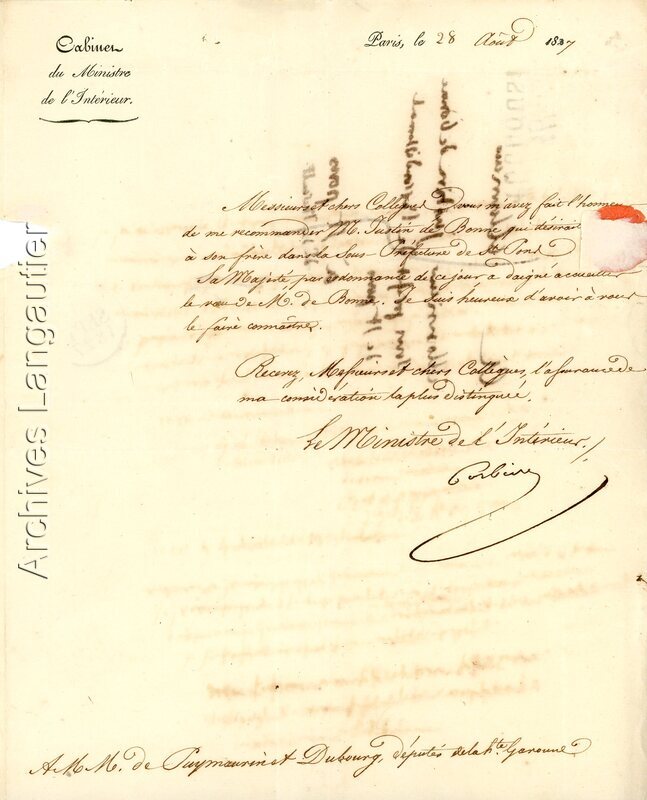 Cabinet
du Ministre
de l'Intérieur.
Paris, le 28 Août 1827
Messieurs et chers Collègues vous m'avez fait l'honneur
de me recommander M. Justin de Bonne qui désirait
à son frère dans la Sous-Préfecture de St Pons
Sa Majesté, par ordonnance de ce jour a daigné accueillir
le vœu de M. de Bonne. Je suis heureux d'avoir à vous
le faire connaître.
Recevez, Messieurs et chers Collègues, l'assurance de
ma considération la plus distinguée.
Le Ministre de l'Intérieur,
Corbière
A M M. de Puymaurin et Dubourg, députés de la hte Garonne
Archives Langautier